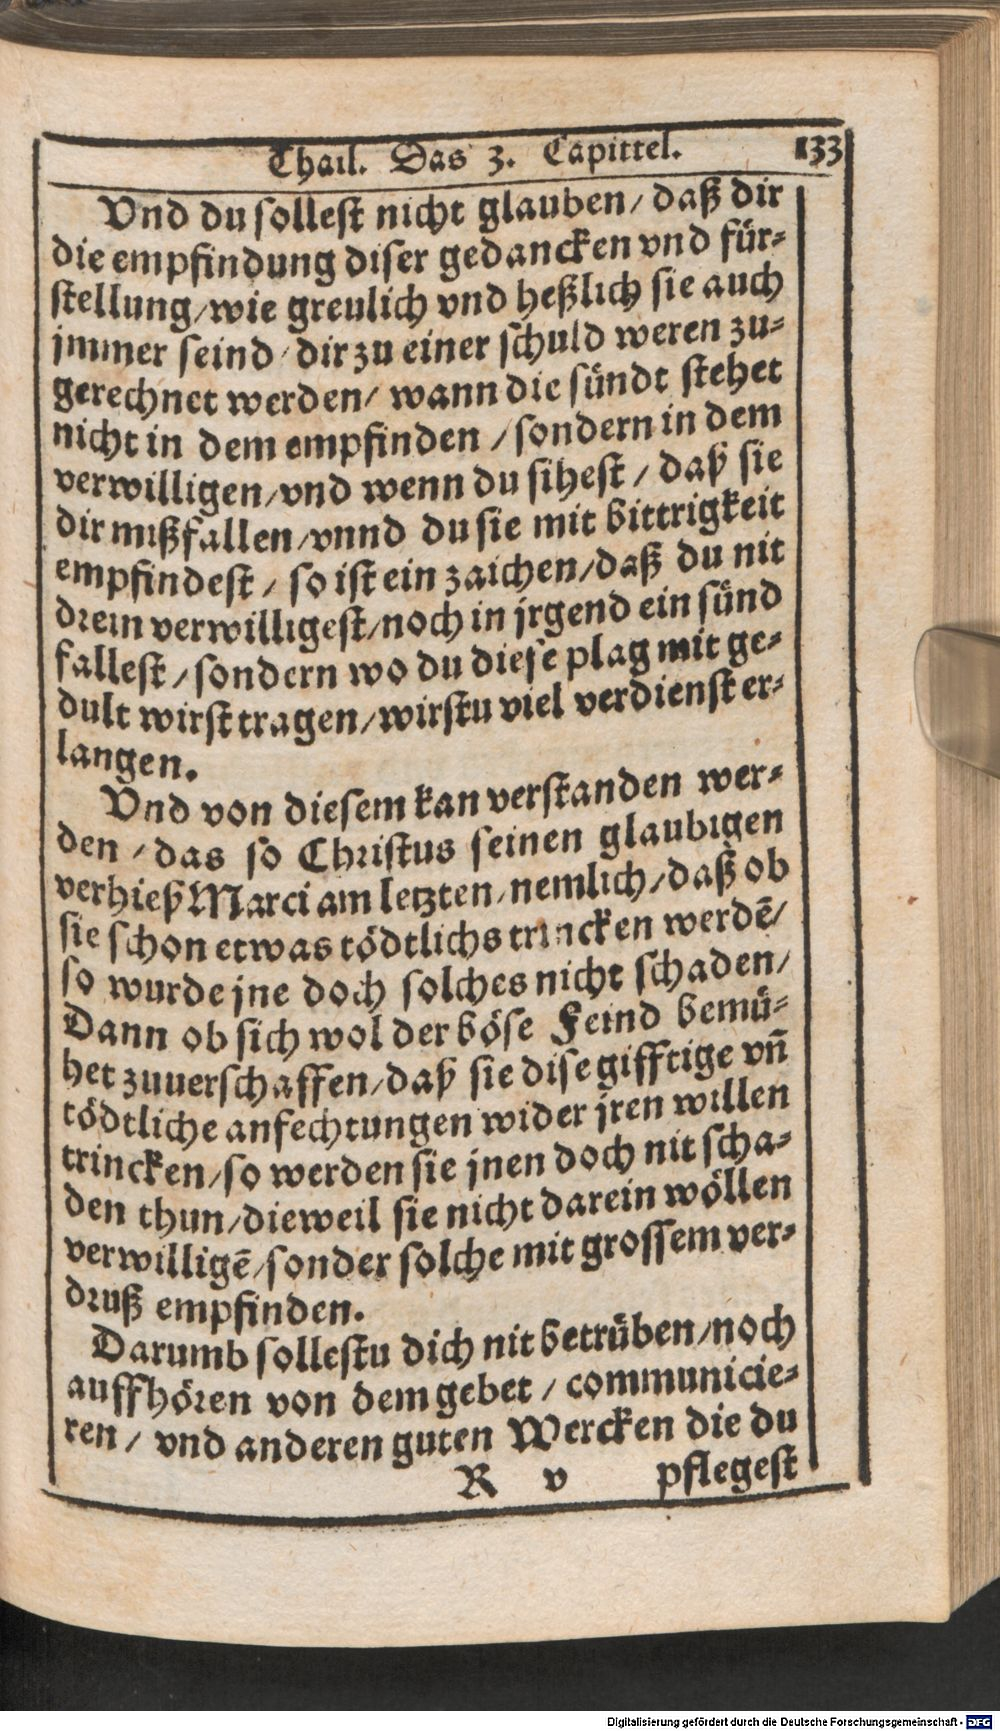 Thail. Das 3. Capittel. 133
Vnd du sollest nicht glauben/ daß dir
die empfindung diser gedancken vnd für-
stellung/wie greulich vnd heßlich sie auch
jmmer seind/ dir zu einer schuld weren zu-
gerechnet werden/ wann die sündt stehet
nicht in dem empfinden /sondern in dem
verwilligen/vnd wenn du sihest/ daß sie
dir mißfallen/vnnd du sie mit bittrigkeit
empfindest/ so ist ein zaichen/daß du nit
drein verwilligest/noch in jrgend ein sünd
fallest/sondern wo du diese plag mit ge-
dult wirst tragen/wirstu viel verdienst er-
langen.
Vnd von diesem kan verstanden wer-
den /das so Christus seinen glaubigen
verhieß Marci am letzten/nemlich/daß ob
sie schon etwas tödtlichs trincken werdē/
so wurde jne doch solches nicht schaden/
Dann ob sich wol der böse Feind bemü-
het zuuerschaffen/daß sie dise gifftige vñ
tödtliche anfechtungen wider jren willen
trincken/so werden sie jnen doch nit scha-
den thun/dieweil sie nicht darein wöllen
verwilligē/sonder solche mit grossem ver-
druß empfinden.
Darumb sollestu dich nit betrüben/noch
auffhören von dem gebet/ communicie-
ren/ vnd anderen guten Wercken die du
R v pflegest
Digitalisierung gefördert durch die Deutsche Forschungsgemeinschaft - DFG